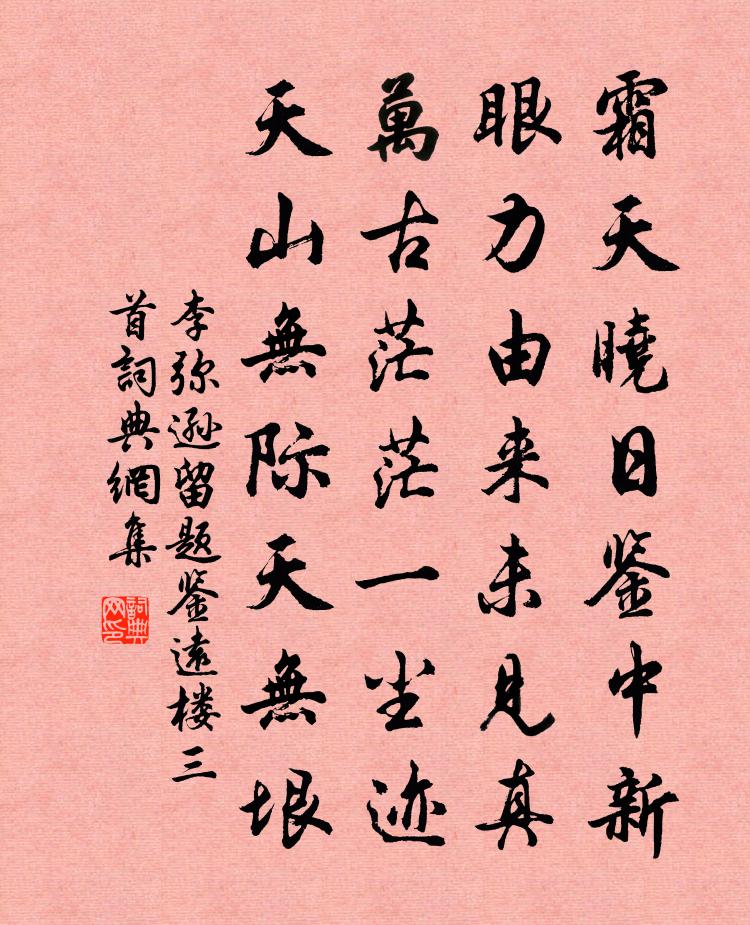 霜天曉日鉴中新
眼力由来未見真
萬古茫茫一尘迹
天山無际天無垠
李弥遜留题鉴遠楼三
首詞典網集
詞典網印